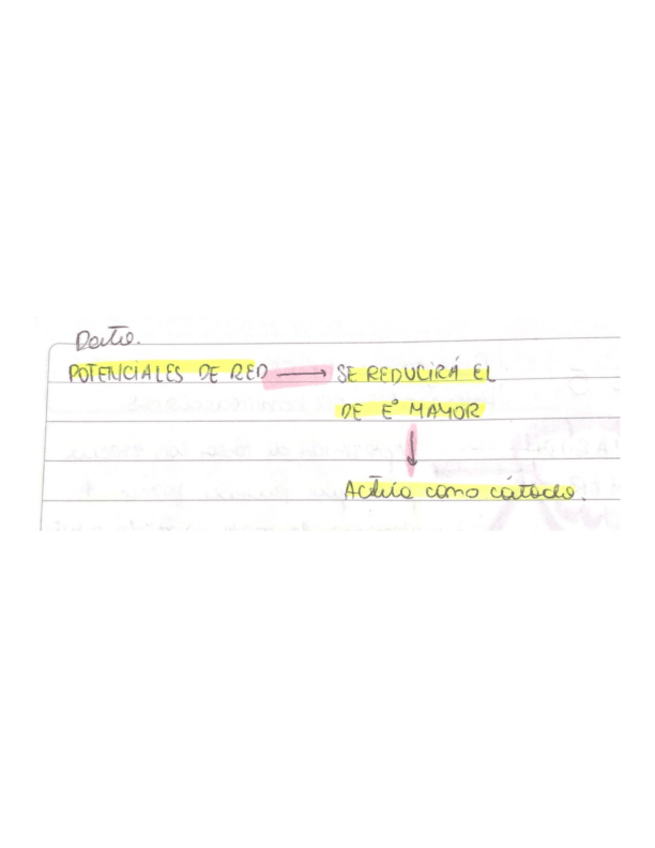 Dato.
POTENCIALES DE RED → SE REDUCIRÁ EL
DE E° MAYOR
↓
Actúa como cátodo.